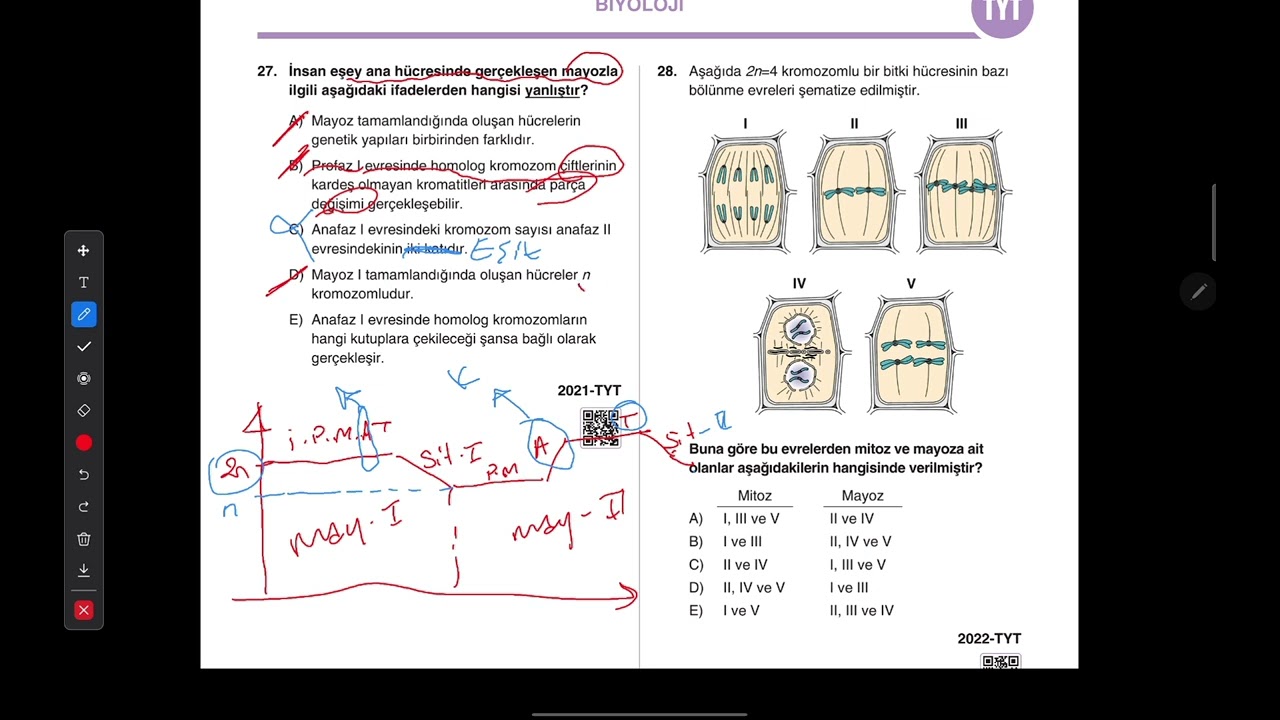 BİYOLOJİ
TYT
27. İnsan eşey ana hücresinde gerçekleşen mayozla
ilgili aşağıdaki ifadelerden hangisi yanlıştır?
A) Mayoz tamamlandığında oluşan hücrelerin
genetik yapıları birbirinden farklıdır.
B) Profaz I evresinde homolog kromozom çiftlerinin
kardeş olmayan kromatitleri arasında parça
değişimi gerçekleşebilir.
C) Anafaz I evresindeki kromozom sayısı anafaz II
evresindekinin iki katıdır. Eşit
D) Mayoz I tamamlandığında oluşan hücreler n
kromozomludur.
E) Anafaz I evresinde homolog kromozomların
hangi kutuplara çekileceği şansa bağlı olarak
gerçekleşir.
2021-TYT
i.P.M.A.T
Sit.I
P.M
A
T
Sit-II
2n
n
may-I
may-II
28. Aşağıda 2n=4 kromozomlu bir bitki hücresinin bazı
bölünme evreleri şematize edilmiştir.
I II III
IV V
Buna göre bu evrelerden mitoz ve mayoza ait
olanlar aşağıdakilerin hangisinde verilmiştir?
Mitoz Mayoz
A) I, III ve V II ve IV
B) I ve III II, IV ve V
C) II ve IV I, III ve V
D) II, IV ve V I ve III
E) I ve V II, III ve IV
2022-TYT
T